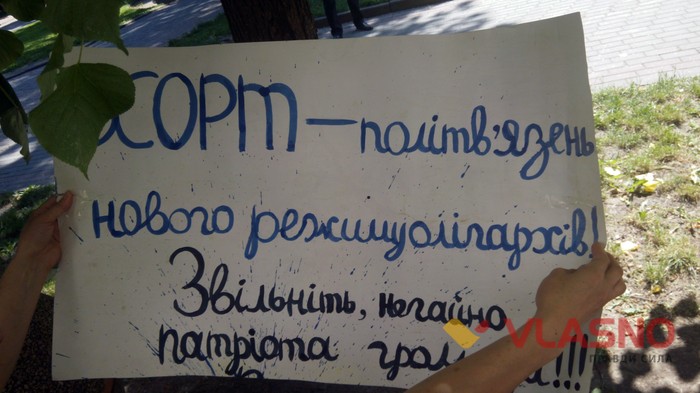 ХОРТ – політв'язень
нового режиму олігархів!
Звільніть, негайно
патріота !!!
VLASNO
ПРАВДИ СИЛА